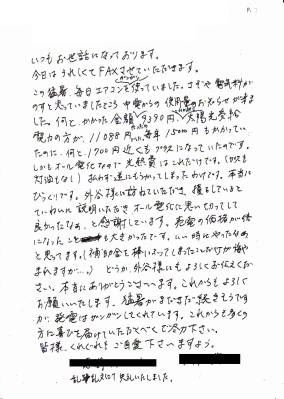 いつもお世話になっております。
今日はうれしくてFAXさせていただきます。
この猛暑、毎日エアコンを使っていました。さぞや電気料がかかる
のすと思っていましたところ 中電からの使用量のお知らせが来ま
した。何と、かかった金額 9390円、太陽光受給
電力の方が、11088円、毎年15000円もかかってい
たのに、何と1700円近くもプラスになっていたのです。
しかもオール電化なので光熱費はこれだけです。(ガスも
灯油もなし) 払わず逆にもうかってしまったわけです。本当に
びっくりです。外谷様に訪ねていただき、損をしないよと
ていねいに説明いただき オール電化に思い切ってして
良かったなあ、と感謝しています。売電の価格が倍
になったことも大きかったです。いい時にやったなあ
と思ってます。(補助金を棒にふってしまったことだけが悔や
まれますが…) どうか、外谷様にもよろしくお伝えくだ
さい。本当にありがとうございます。これからもよろしく
お願いいたします。猛暑がまだまだ続きそうです
が、発電はガンガンしてくれています。これからも多くの
方に喜びを届けていただくべくご尽力下さい。
皆様、くれぐれもご自愛下さいますよう。
乱筆乱文にて失礼いたしました。